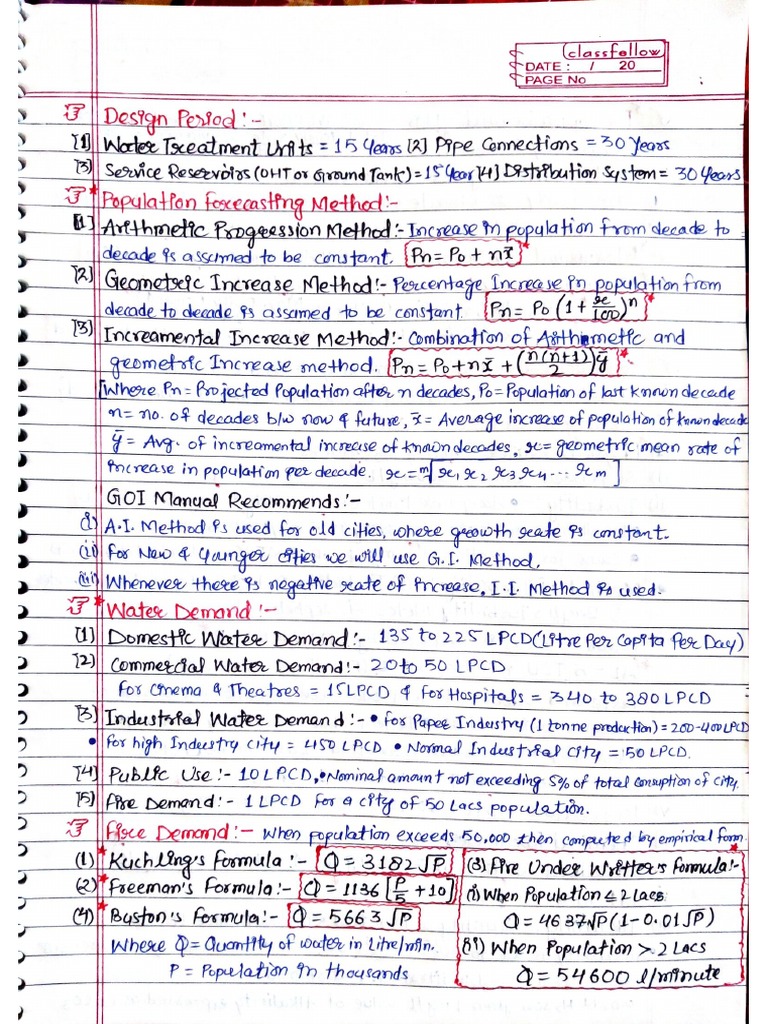 classfellow
DATE : / 20
PAGE No
Design Period :-
[1] Water Treatment Units = 15 Years [2] Pipe Connections = 30 Years
[3] Service Reservoirs (OHT or Ground Tank) = 15 Year [4] Distribution System = 30 Years
* Population Forecasting Method :-
[1] Arithmetic Progression Method :- Increase in population from decade to
decade is assumed to be constant. Pn = Po + nx̄ *
[2] Geometric Increase Method :- Percentage Increase in population from
decade to decade is assumed to be constant. Pn = Po (1 + r/100)^n *
[3] Increamental Increase Method :- Combination of Arithmetic and
geometric Increase method. Pn = Po + nx̄ + (n(n+1)/2) ȳ *
[Where Pn = Projected Population after n decades, Po = Population of last known decade
n = no. of decades b/w now & future, x̄ = Average increase of population of known decade
ȳ = Avg. of increamental increase of known decades, r = geometric mean rate of
increase in population per decade. r = m√[r1 r2 r3 r4 ... rm]
GOI Manual Recommends :-
(i) A.I. Method is used for old cities, where growth rate is constant.
(ii) For New & Younger cities we will use G.I. Method.
(iii) Whenever there is negative rate of increase, I.I. Method is used.
* Water Demand :-
[1] Domestic Water Demand :- 135 to 225 LPCD (Litre Per Capita Per Day)
[2] Commercial Water Demand :- 20 to 50 LPCD
For Cinema & Theatres = 15 LPCD & For Hospitals = 340 to 380 LPCD
[3] Industrial Water Demand :- • For Paper Industry (1 tonne production) = 200-400 LPCD
• For high Industry city = 450 LPCD • Normal Industrial City = 50 LPCD.
[4] Public Use :- 10 LPCD, • Nominal amount not exceeding 5% of total consuption of city.
[5] Fire Demand :- 1 LPCD For a city of 50 Lacs population.
Fire Demand :- When population exceeds 50,000 then computed by empirical form.
(1) * Kuchling's Formula :- Q = 3182 √P
(2) * Freeman's Formula :- Q = 1136 [P/5 + 10]
(4) * Buston's Formula :- Q = 5663 √P
Where Q = Quantity of water in Litre/min.
P = Population in thousands
(3) Fire Under Writter's Formula :- *
(i) When Population ≤ 2 Lacs
Q = 4637 √P (1 - 0.01 √P)
(ii) When Population > 2 Lacs
Q = 54600 l/minute